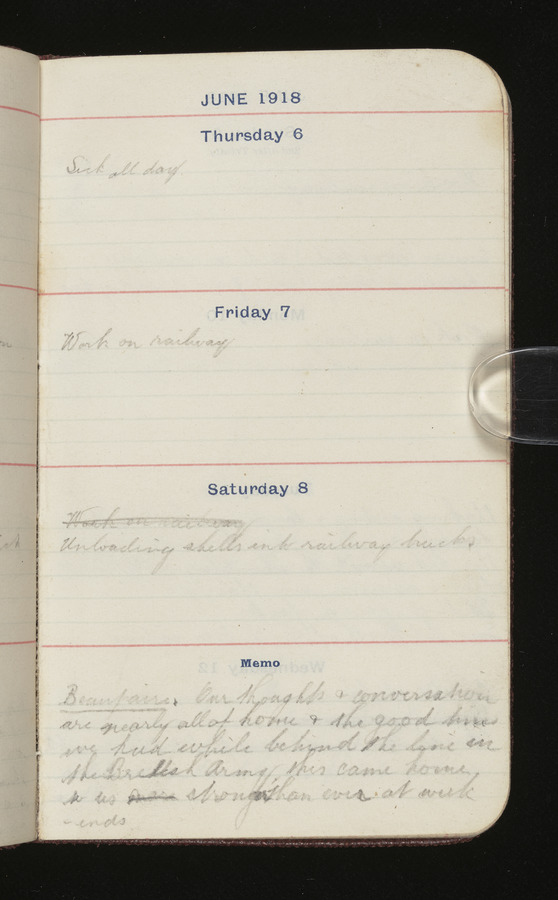 JUNE 1918
Thursday 6
Sick all day
Friday 7
Work on railway
Saturday 8
Work on railway
Unloading shells into railway trucks
Memo
Our thoughts & conversation
are nearly all of home & the good times
we had while behind the line in
the British Army, this came home
to us more stronger than ever at week
-ends